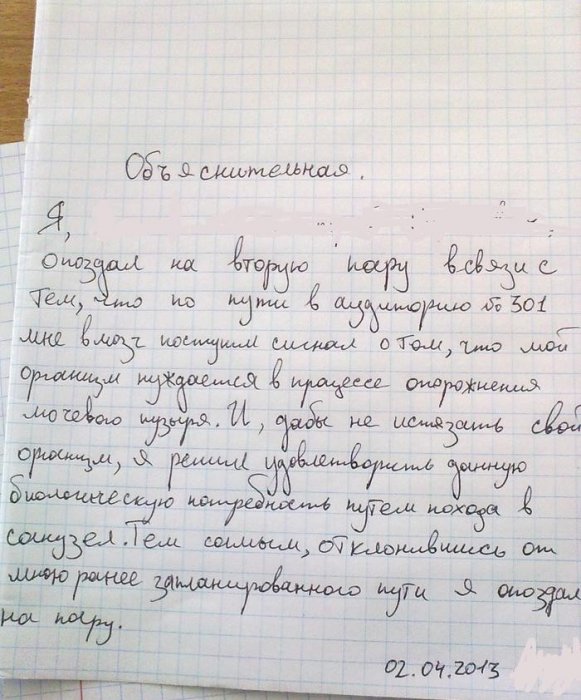 Объяснительная.
Я,
опоздал на вторую пару всвязи с
тем, что по пути в аудиторию № 301
мне в мозг поступил сигнал о том, что мой
организм нуждается в процессе опорожнения
мочевого пузыря. И, дабы не истязать свой
организм, я решил удовлетворить данную
биологическую потребность путем похода в
санузел. Тем самым, отклонившись от
мною ранее запланированного пути я опоздал
на пару.
02.04.2013